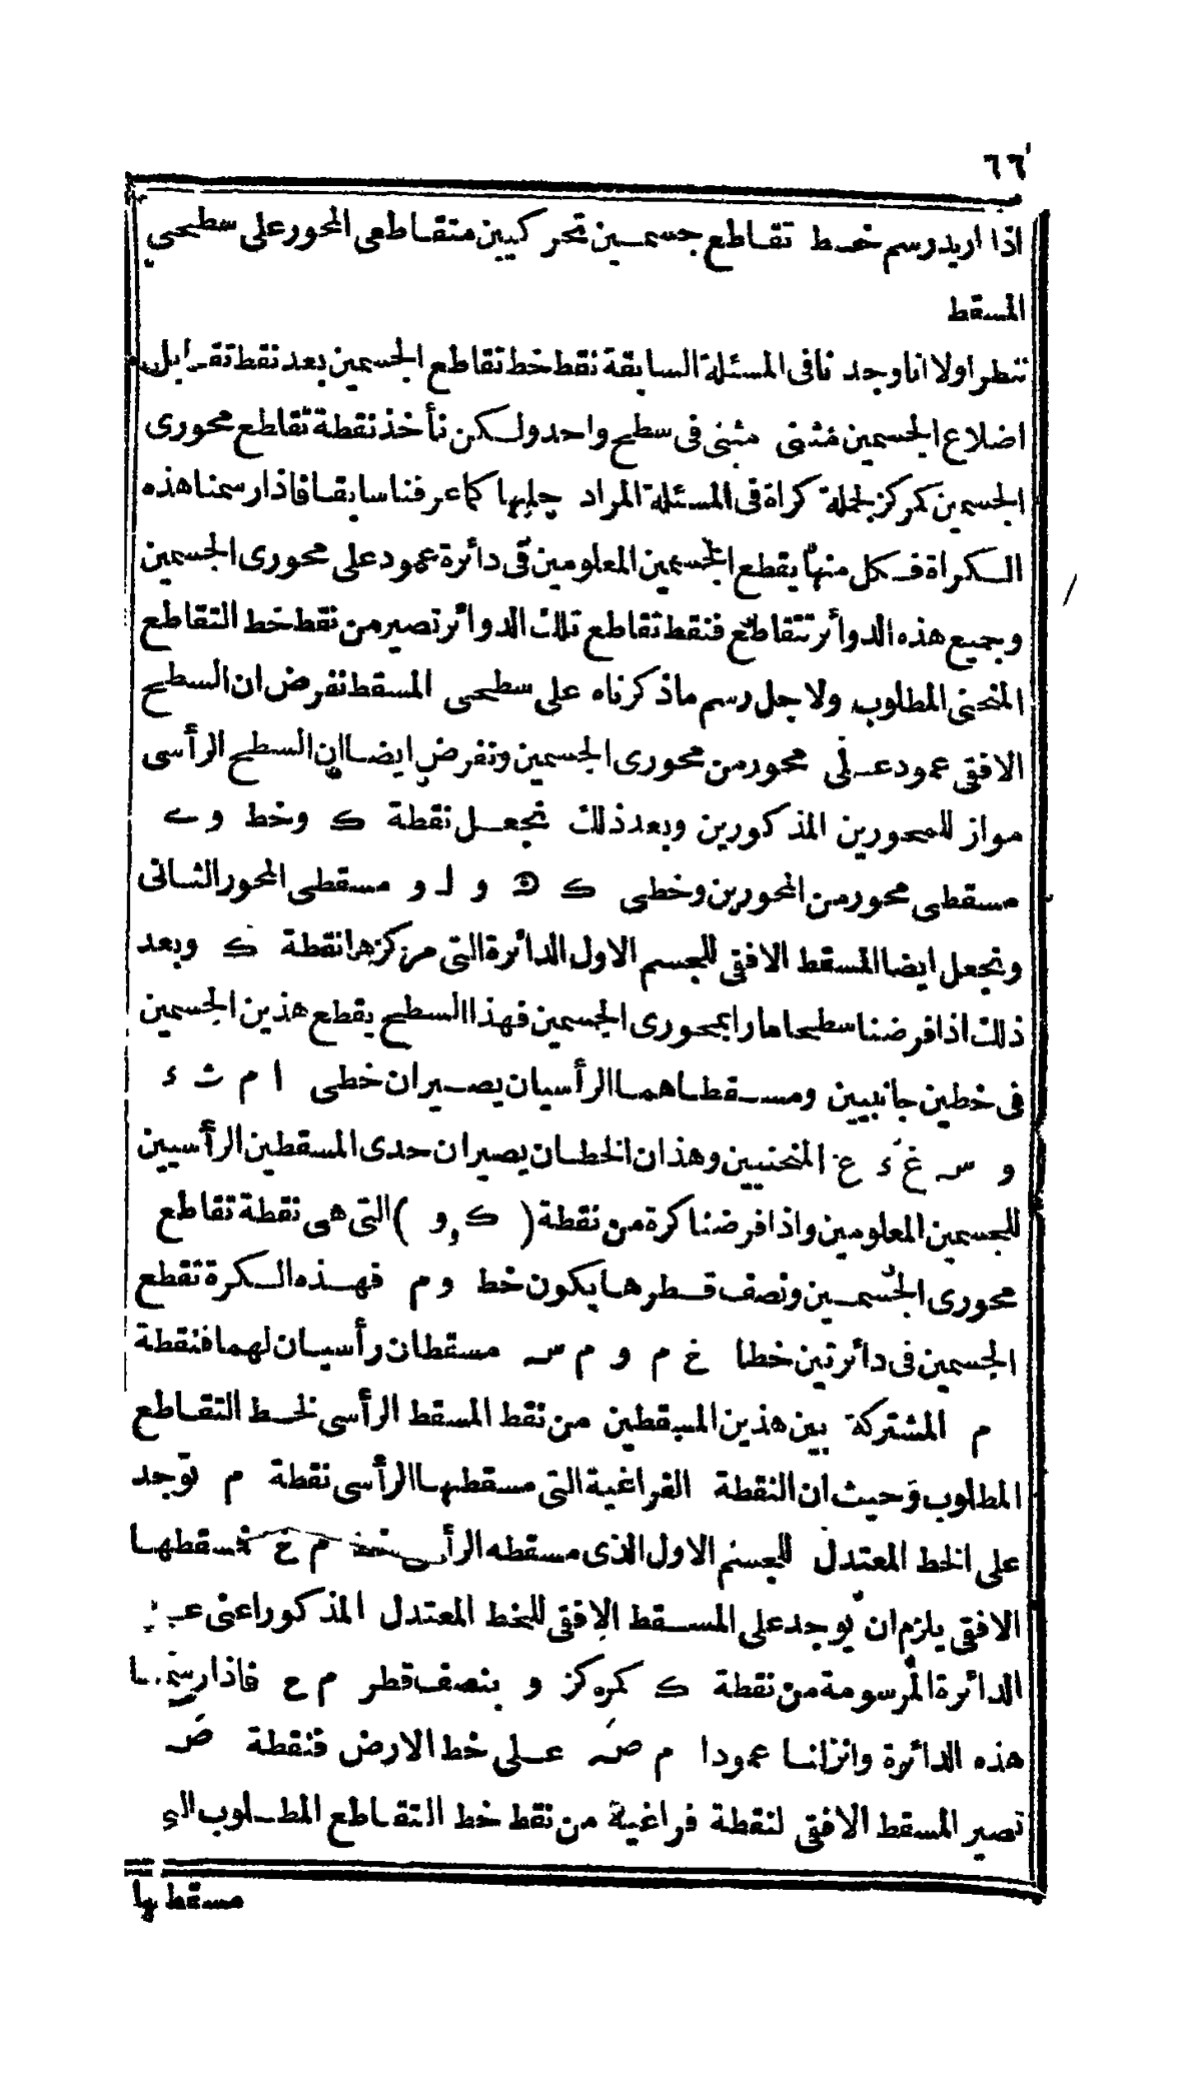 ٦٦
اذا اريد رسم خط تقاطع جسمين تحركيين متقاطعى المحور على سطحى
المسقط
ننظر اولا انا وجدنا فى المسئلة السابقة نقط خط تقاطع الجسمين بعد نقط تقابل
اضلاع الجسمين مثنى مثنى فى سطح واحد ولكن نأخذ نقطة تقاطع محورى
الجسمين كمركز لجملة كراة فى المسئلة المراد حلها كما عرفنا سابقا فاذا رسمنا هذه
الكراة فكل منها يقطع الجسمين المعلومين فى دائرة عمود على محورى الجسمين
وجميع هذه الدوائر تتقاطع فنقط تقاطع تلك الدوائر تصير من نقط خط التقاطع
المنحنى المطلوب ولاجل رسم ماذكرناه على سطحى المسقط نفرض ان السطح
الافقى عمود على محور من محورى الجسمين ونفرض ايضا ان السطح الرأسى
مواز للمحورين المذكورين وبعد ذلك نجعل نقطة ك وخط وے
مسقطى محور من المحورين وخطى ك ه و ل و مسقطى المحور الثانى
ونجعل ايضا المسقط الافقى للجسم الاول الدائرة التى مركزها نقطة ك وبعد
ذلك اذا فرضنا سطحا مارا بمحورى الجسمين فهذا السطح يقطع هذين الجسمين
فى خطين جانبيين ومسقطاهما الرأسيان يصيران خطى ا م ث ء
و س غَ ءَ ع المنحنيين وهذان الخطان يصيران حدى المسقطين الرأسيين
للجسمين المعلومين واذا فرضنا كرة من نقطة ( ك , و ) التى هى نقطة تقاطع
محورى الجسمين ونصف قطرها يكون خط وم فهذه الكرة تقطع
الجسمين فى دائرتين خطا خ م و م س مسقطان رأسيان لهما فنقطة
م المشتركة بين هذين المسقطين من نقط المسقط الرأسى لخط التقاطع
المطلوب وحيث ان النقطة الفراغية التى مسقطها الرأسى نقطة م توجد
على الخط المعتدل للجسم الاول الذى مسقطه الرأسى خط م خ فمسقطها
الافقى يلزم ان يوجد على المسقط الافقى للخط المعتدل المذكور اعنى
الدائرة المرسومة من نقطة ك كمركز و بنصف قطر م ع فاذا رسمنا
هذه الدائرة وانزلنا عمودا م صَ على خط الارض فنقطة صَ
تصير المسقط الافقى لنقطة فراغية من نقط خط التقاطع المطلوب التى
مسقطها